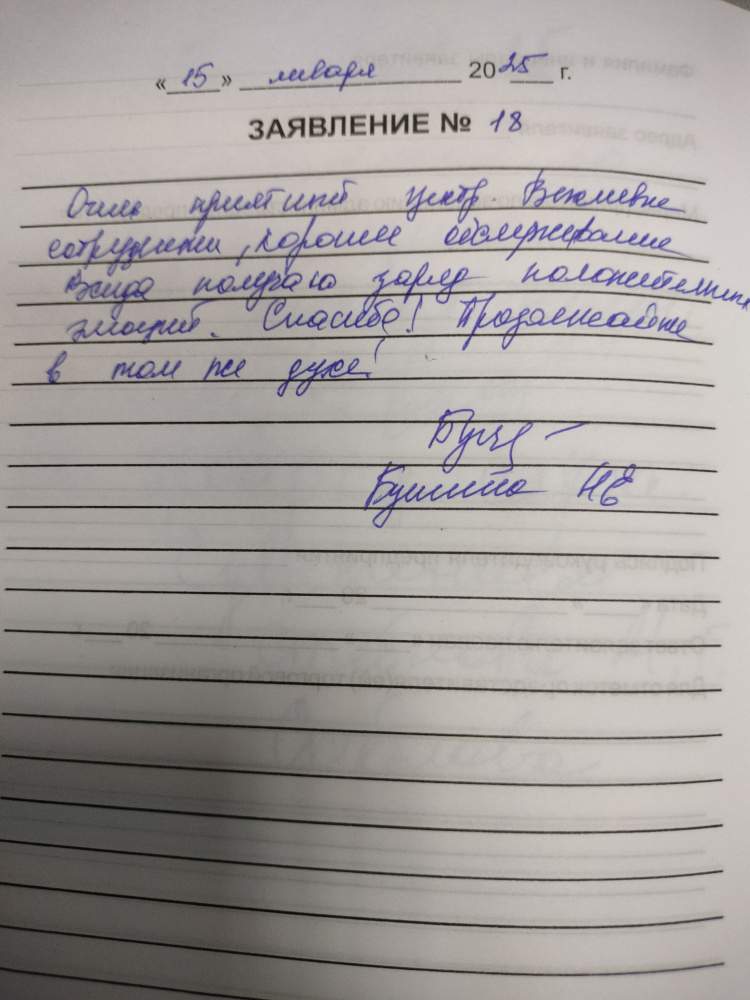 « 15 » января 2025 г.
ЗАЯВЛЕНИЕ № 18
Очень приятный центр. Вежливые
сотрудники, хорошее обслуживание
Всегда получаю заряд положительных
эмоций. Спасибо! Продолжайте
в том же духе!
НЕ